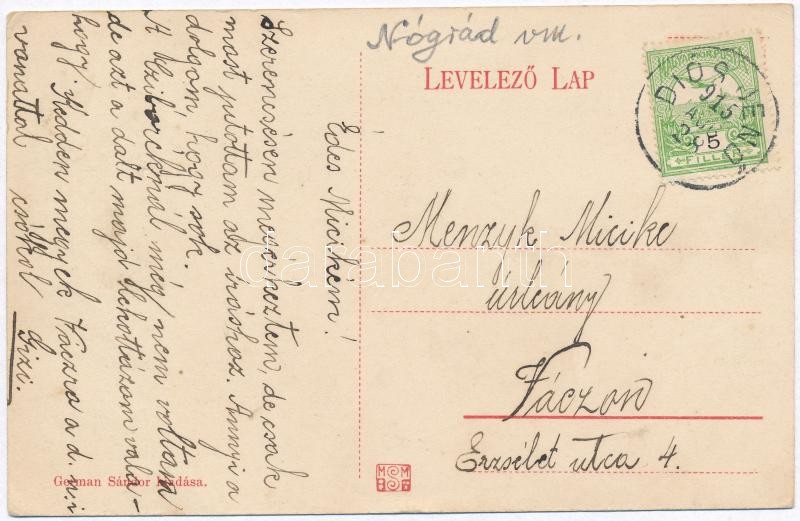 Nógrád vm.
LEVELEZŐ LAP
DIÓSJENŐ
915
5
FILLÉR
Édes Micikém!
Szerencsésen megérkeztem, de csak
most jutottam az íráshoz. Annyi a
dolgom, hogy sok.
A még nem voltam
de azt a dalt majd valu-
hogy. Kedden megyek Váczra a d.u.i
vonattal csókol
Gizi.
Menzyk Micike
úrleány
Váczon
Erzsébet utca 4.
German Sándor kiadása.
M M
darabanth